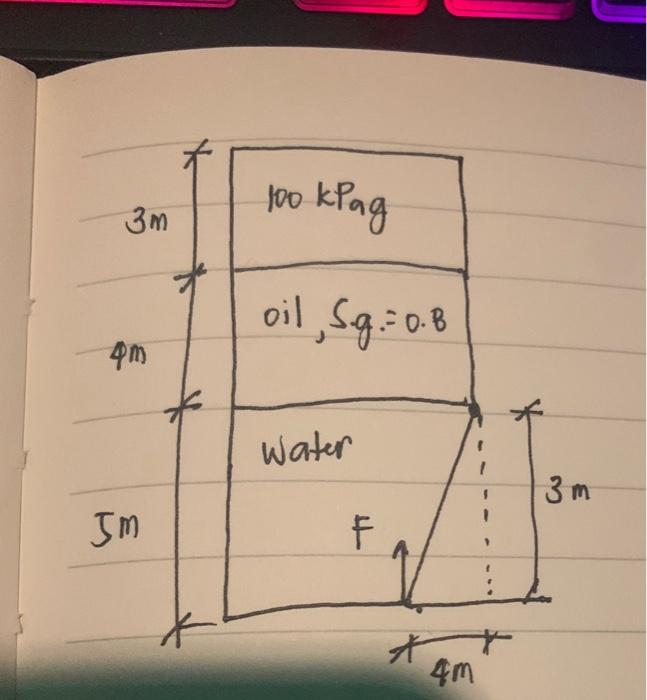 100 kPag
3m
oil, S.g.=0.8
4m
Water
3m
5m
F
4m